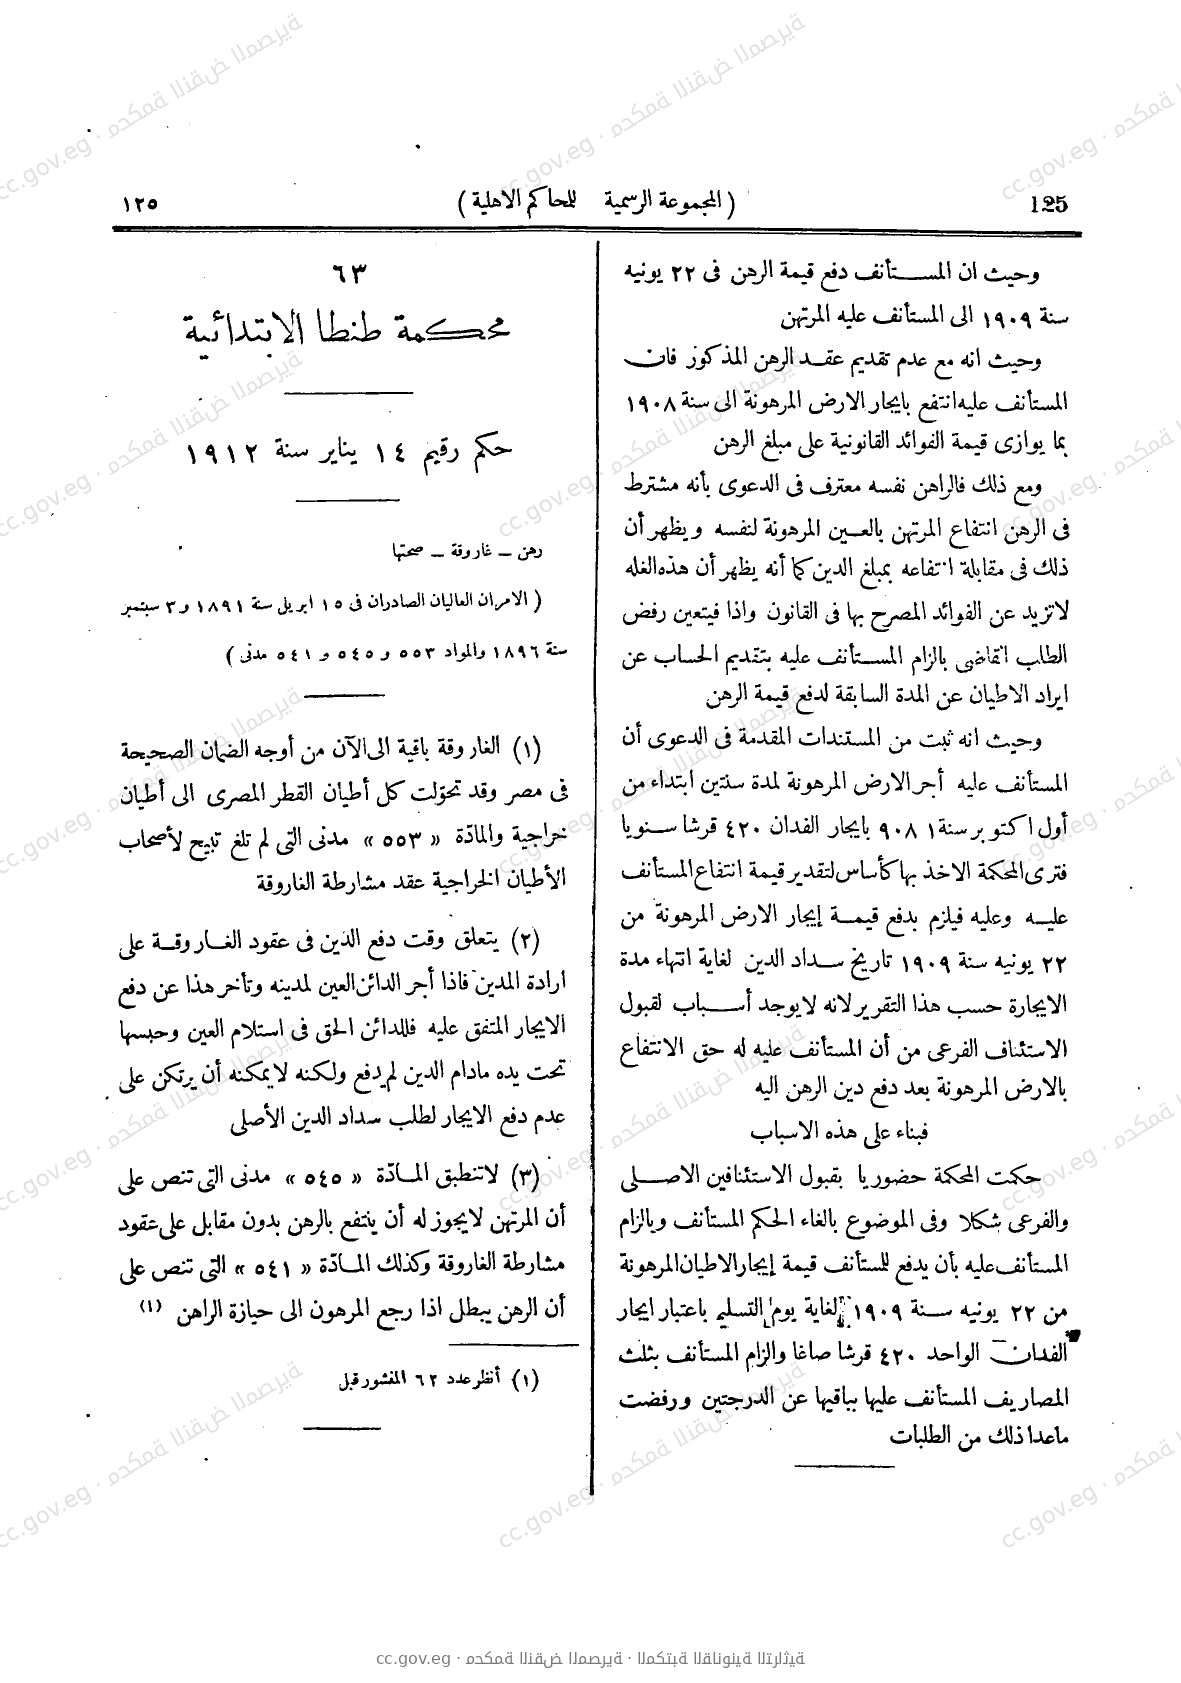 125 ( المجموعة الرسمية للمحاكم الاهلية ) ١٢٥
وحيث ان المستأنف دفع قيمة الرهن فى ٢٢ يونيه
سنة ١٩٠٩ الى المستأنف عليه المرتهن
وحيث انه مع عدم تقديم عقد الرهن المذكور فان
المستأنف عليه انتفع بايجار الارض المرهونة الى سنة ١٩٠٨
بما يوازى قيمة الفوائد القانونية على مبلغ الرهن
ومع ذلك فالراهن نفسه معترف فى الدعوى بأنه مشترط
فى الرهن انتفاع المرتهن بالعين المرهونة لنفسه ويظهر أن
ذلك فى مقابلة انتفاعه بمبلغ الدين كما أنه يظهر أن هذه الغله
لاتزيد عن الفوائد المصرح بها فى القانون واذا فيتعين رفض
الطلب القاضى بالزام المستأنف عليه بتقديم الحساب عن
ايراد الاطيان عن المدة السابقة لدفع قيمة الرهن
وحيث انه ثبت من المستندات المقدمة فى الدعوى أن
المستأنف عليه أجر الارض المرهونة لمدة سنتين ابتداء من
أول اكتوبر سنة ١٩٠٨ بايجار الفدان ٤٢٠ قرشا سنويا
فترى المحكمة الاخذ بها كأساس لتقدير قيمة انتفاع المستأنف
عليه وعليه فيلزم بدفع قيمة إيجار الارض المرهونة من
٢٢ يونيه سنة ١٩٠٩ تاريخ سداد الدين لغاية انتهاء مدة
الايجارة حسب هذا التقرير لانه لايوجد أسباب لقبول
الاستئناف الفرعى من أن المستأنف عليه له حق الانتفاع
بالارض المرهونة بعد دفع دين الرهن اليه
فبناء على هذه الاسباب
حكمت المحكمة حضوريا بقبول الاستئنافين الاصلى
والفرعى شكلا وفى الموضوع بالغاء الحكم المستأنف وبالزام
المستأنف عليه بأن يدفع للمستأنف قيمة إيجار الاطيان المرهونة
من ٢٢ يونيه سنة ١٩٠٩ لغاية يوم التسليم باعتبار ايجار
الفدان الواحد ٤٢٠ قرشا صاغا والزام المستأنف بثلث
المصاريف المستأنف عليها بباقيها عن الدرجتين ورفضت
ماعدا ذلك من الطلبات
٦٣
محكمة طنطا الابتدائية
حكم رقيم ١٤ يناير سنة ١٩١٢
رهن – غاروقة – صحتها
( الامران العاليان الصادران فى ١٥ ابريل سنة ١٨٩١ و ٣ سبتمبر
سنة ١٨٩٦ والمواد ٥٥٣ و ٥٤٥ و ٥٤١ مدنى )
(١) الغاروقة باقية الى الآن من أوجه الضمان الصحيحة
فى مصر وقد تحوّلت كل أطيان القطر المصرى الى أطيان
خراجية والمادّة « ٥٥٣ » مدنى التى لم تلغ تبيح لأصحاب
الأطيان الخراجية عقد مشارطة الغاروقة
(٢) يتعلق وقت دفع الدين فى عقود الغاروقة على
ارادة المدين فاذا أجر الدائن العين لمدينه وتأخر هذا عن دفع
الايجار المتفق عليه فللدائن الحق فى استلام العين وحبسها
تحت يده مادام الدين لم يدفع ولكنه لا يمكنه أن يرتكن على
عدم دفع الايجار لطلب سداد الدين الأصلى
(٣) لاتنطبق المادّة « ٥٤٥ » مدنى التى تنص على
أن المرتهن لا يجوز له أن ينتفع بالرهن بدون مقابل على عقود
مشارطة الغاروقة وكذلك المادّة « ٥٤١ » التى تنص على
أن الرهن يبطل اذا رجع المرهون الى حيازة الراهن (١)
(١) أنظر عدد ٦٢ المنشور قبل
cc.gov.eg · محكمة النقض المصرية · المكتبة القانونية التراثية